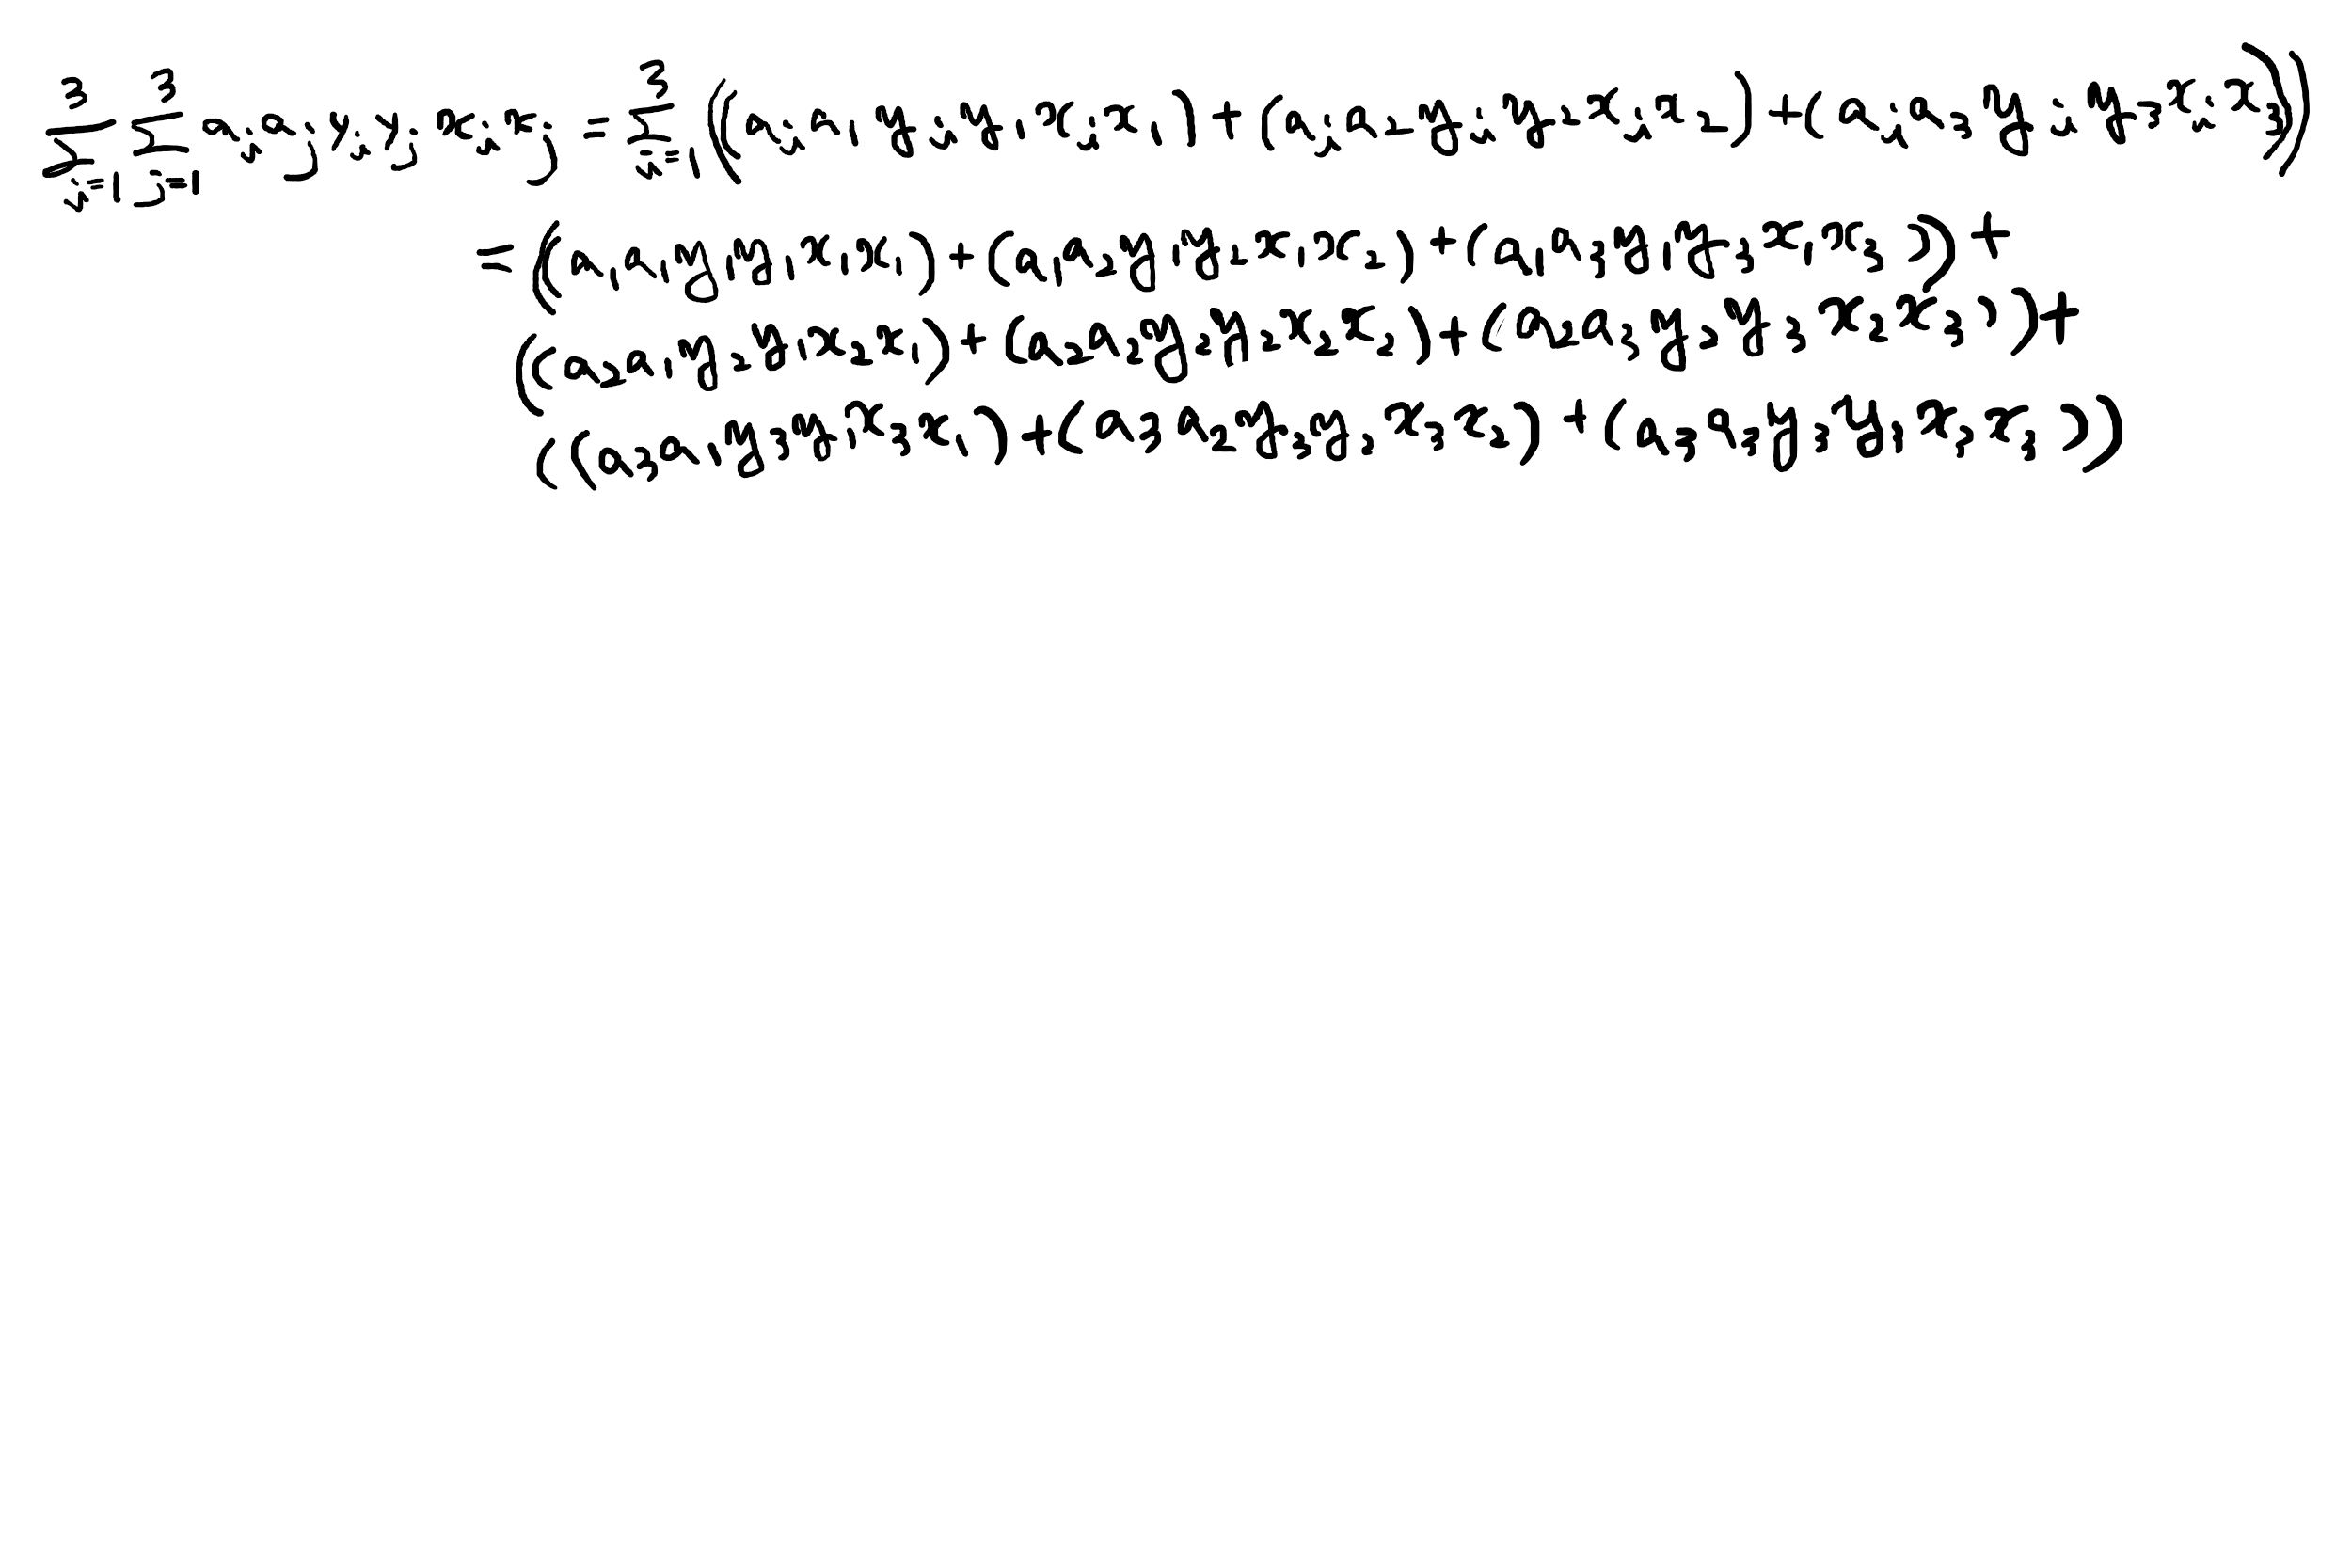 $\sum_{i=1}^{3}\sum_{j=1}^{3} a_i a_j y_i y_j x_i x_j = \sum_{i=1}^{3}((a_i a_1 y_i y_1 x_i x_1) + (a_i a_2 y_i y_2 x_i x_2) + (a_i a_3 y_i y_3 x_i x_3))$
$= ((a_1 a_1 y_1 y_1 x_1 x_1) + (a_1 a_2 y_1 y_2 x_1 x_2) + (a_1 a_3 y_1 y_3 x_1 x_3)) +$
$((a_2 a_1 y_2 y_1 x_2 x_1) + (a_2 a_2 y_2 y_2 x_2 x_2) + (a_2 a_3 y_2 y_3 x_2 x_3)) +$
$((a_3 a_1 y_3 y_1 x_3 x_1) + (a_3 a_2 y_3 y_2 x_3 x_2) + (a_3 a_3 y_3 y_3 x_3 x_3))$